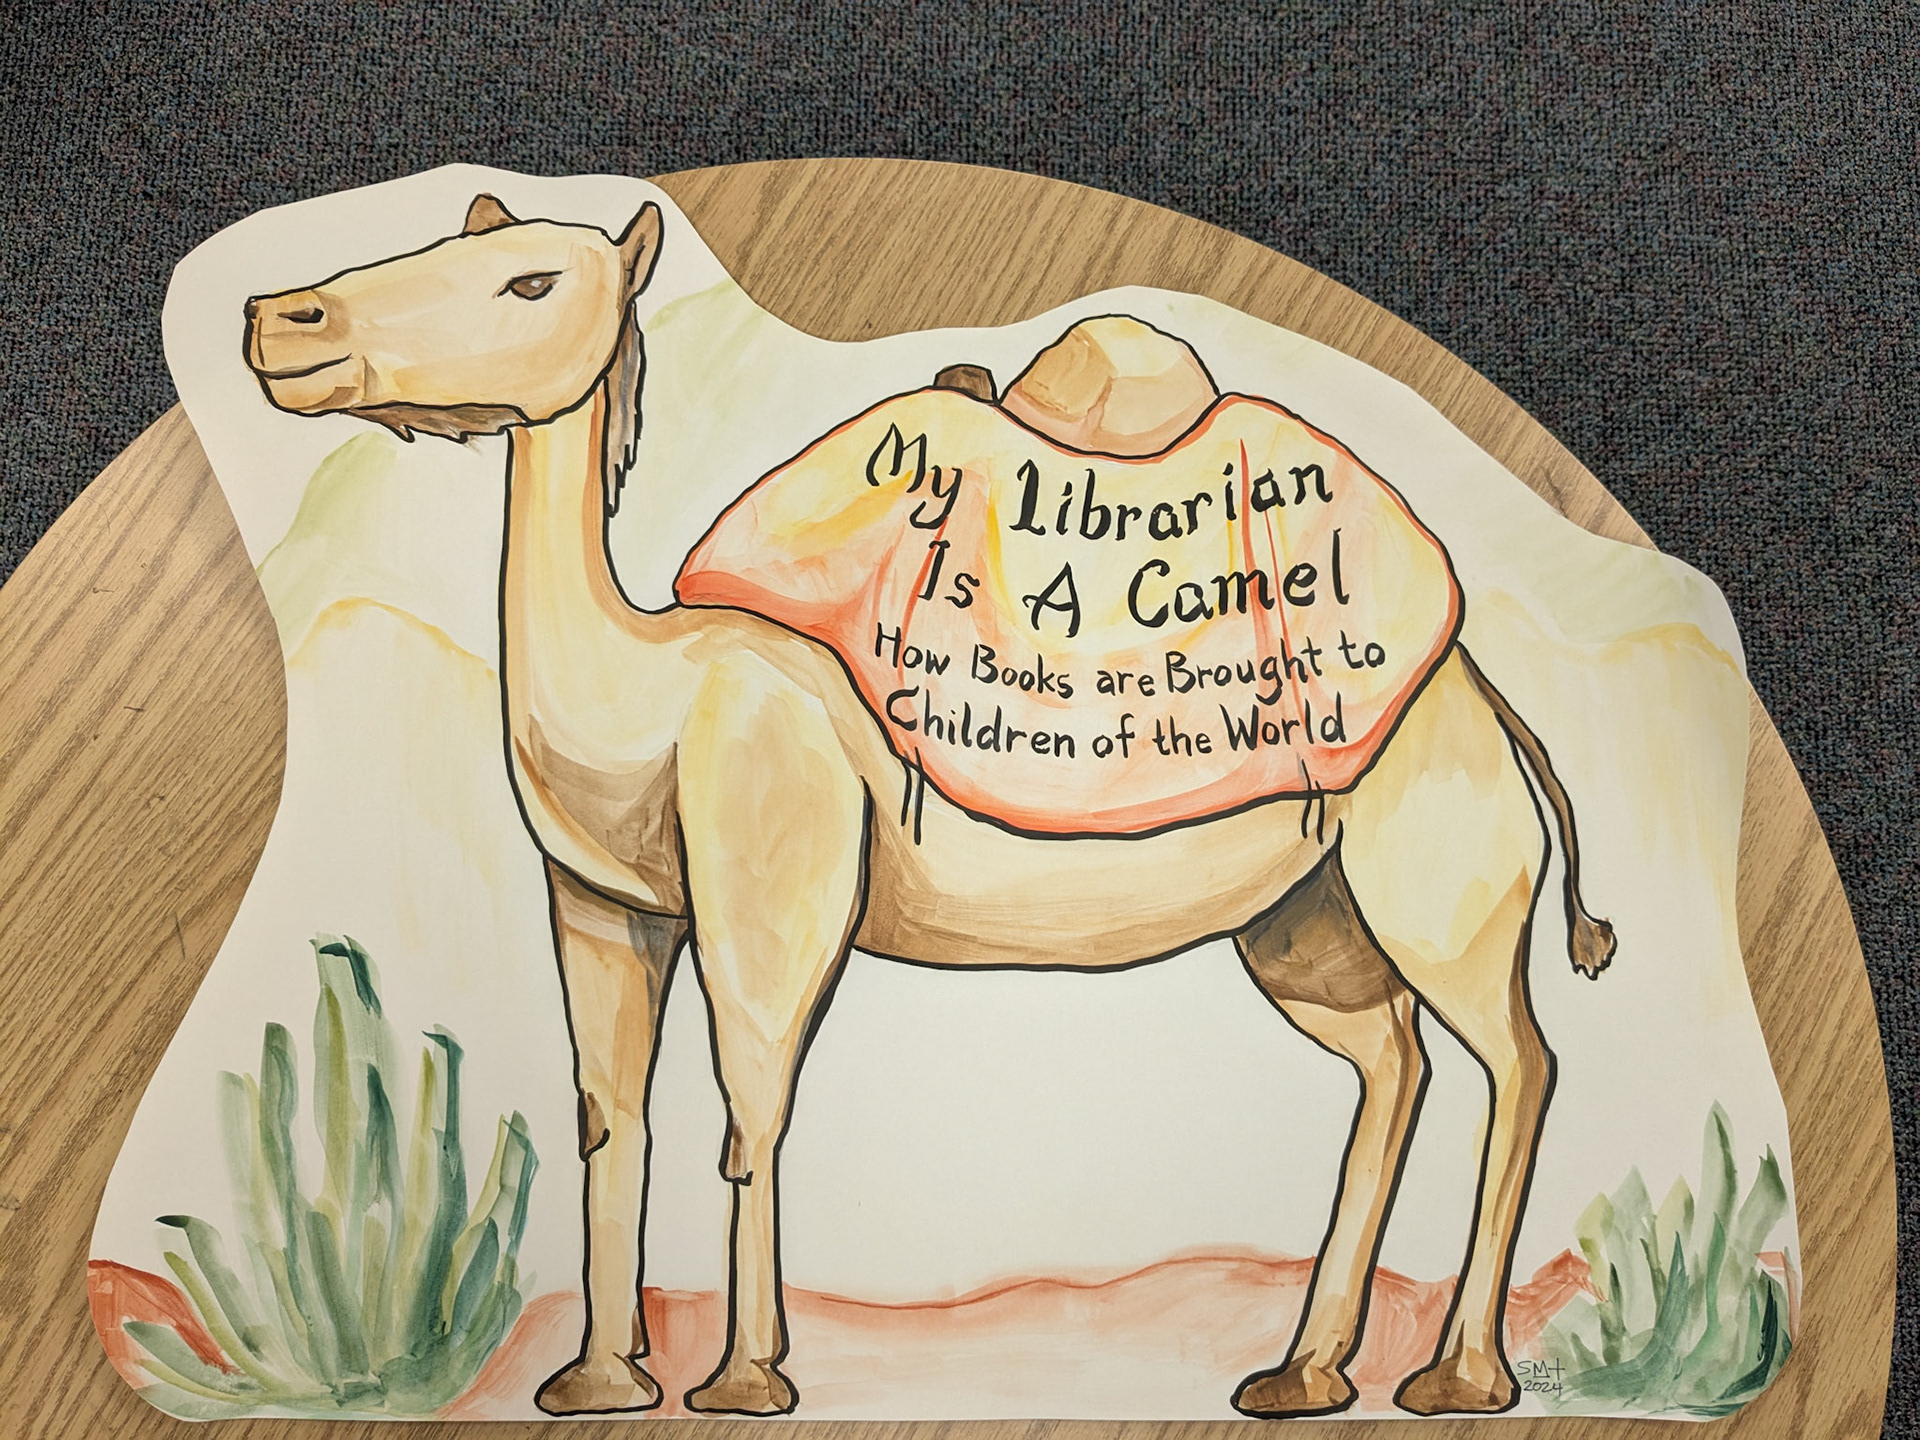 My Librarian
Is A Camel
How Books are Brought to
Children of the World
SMT
2024